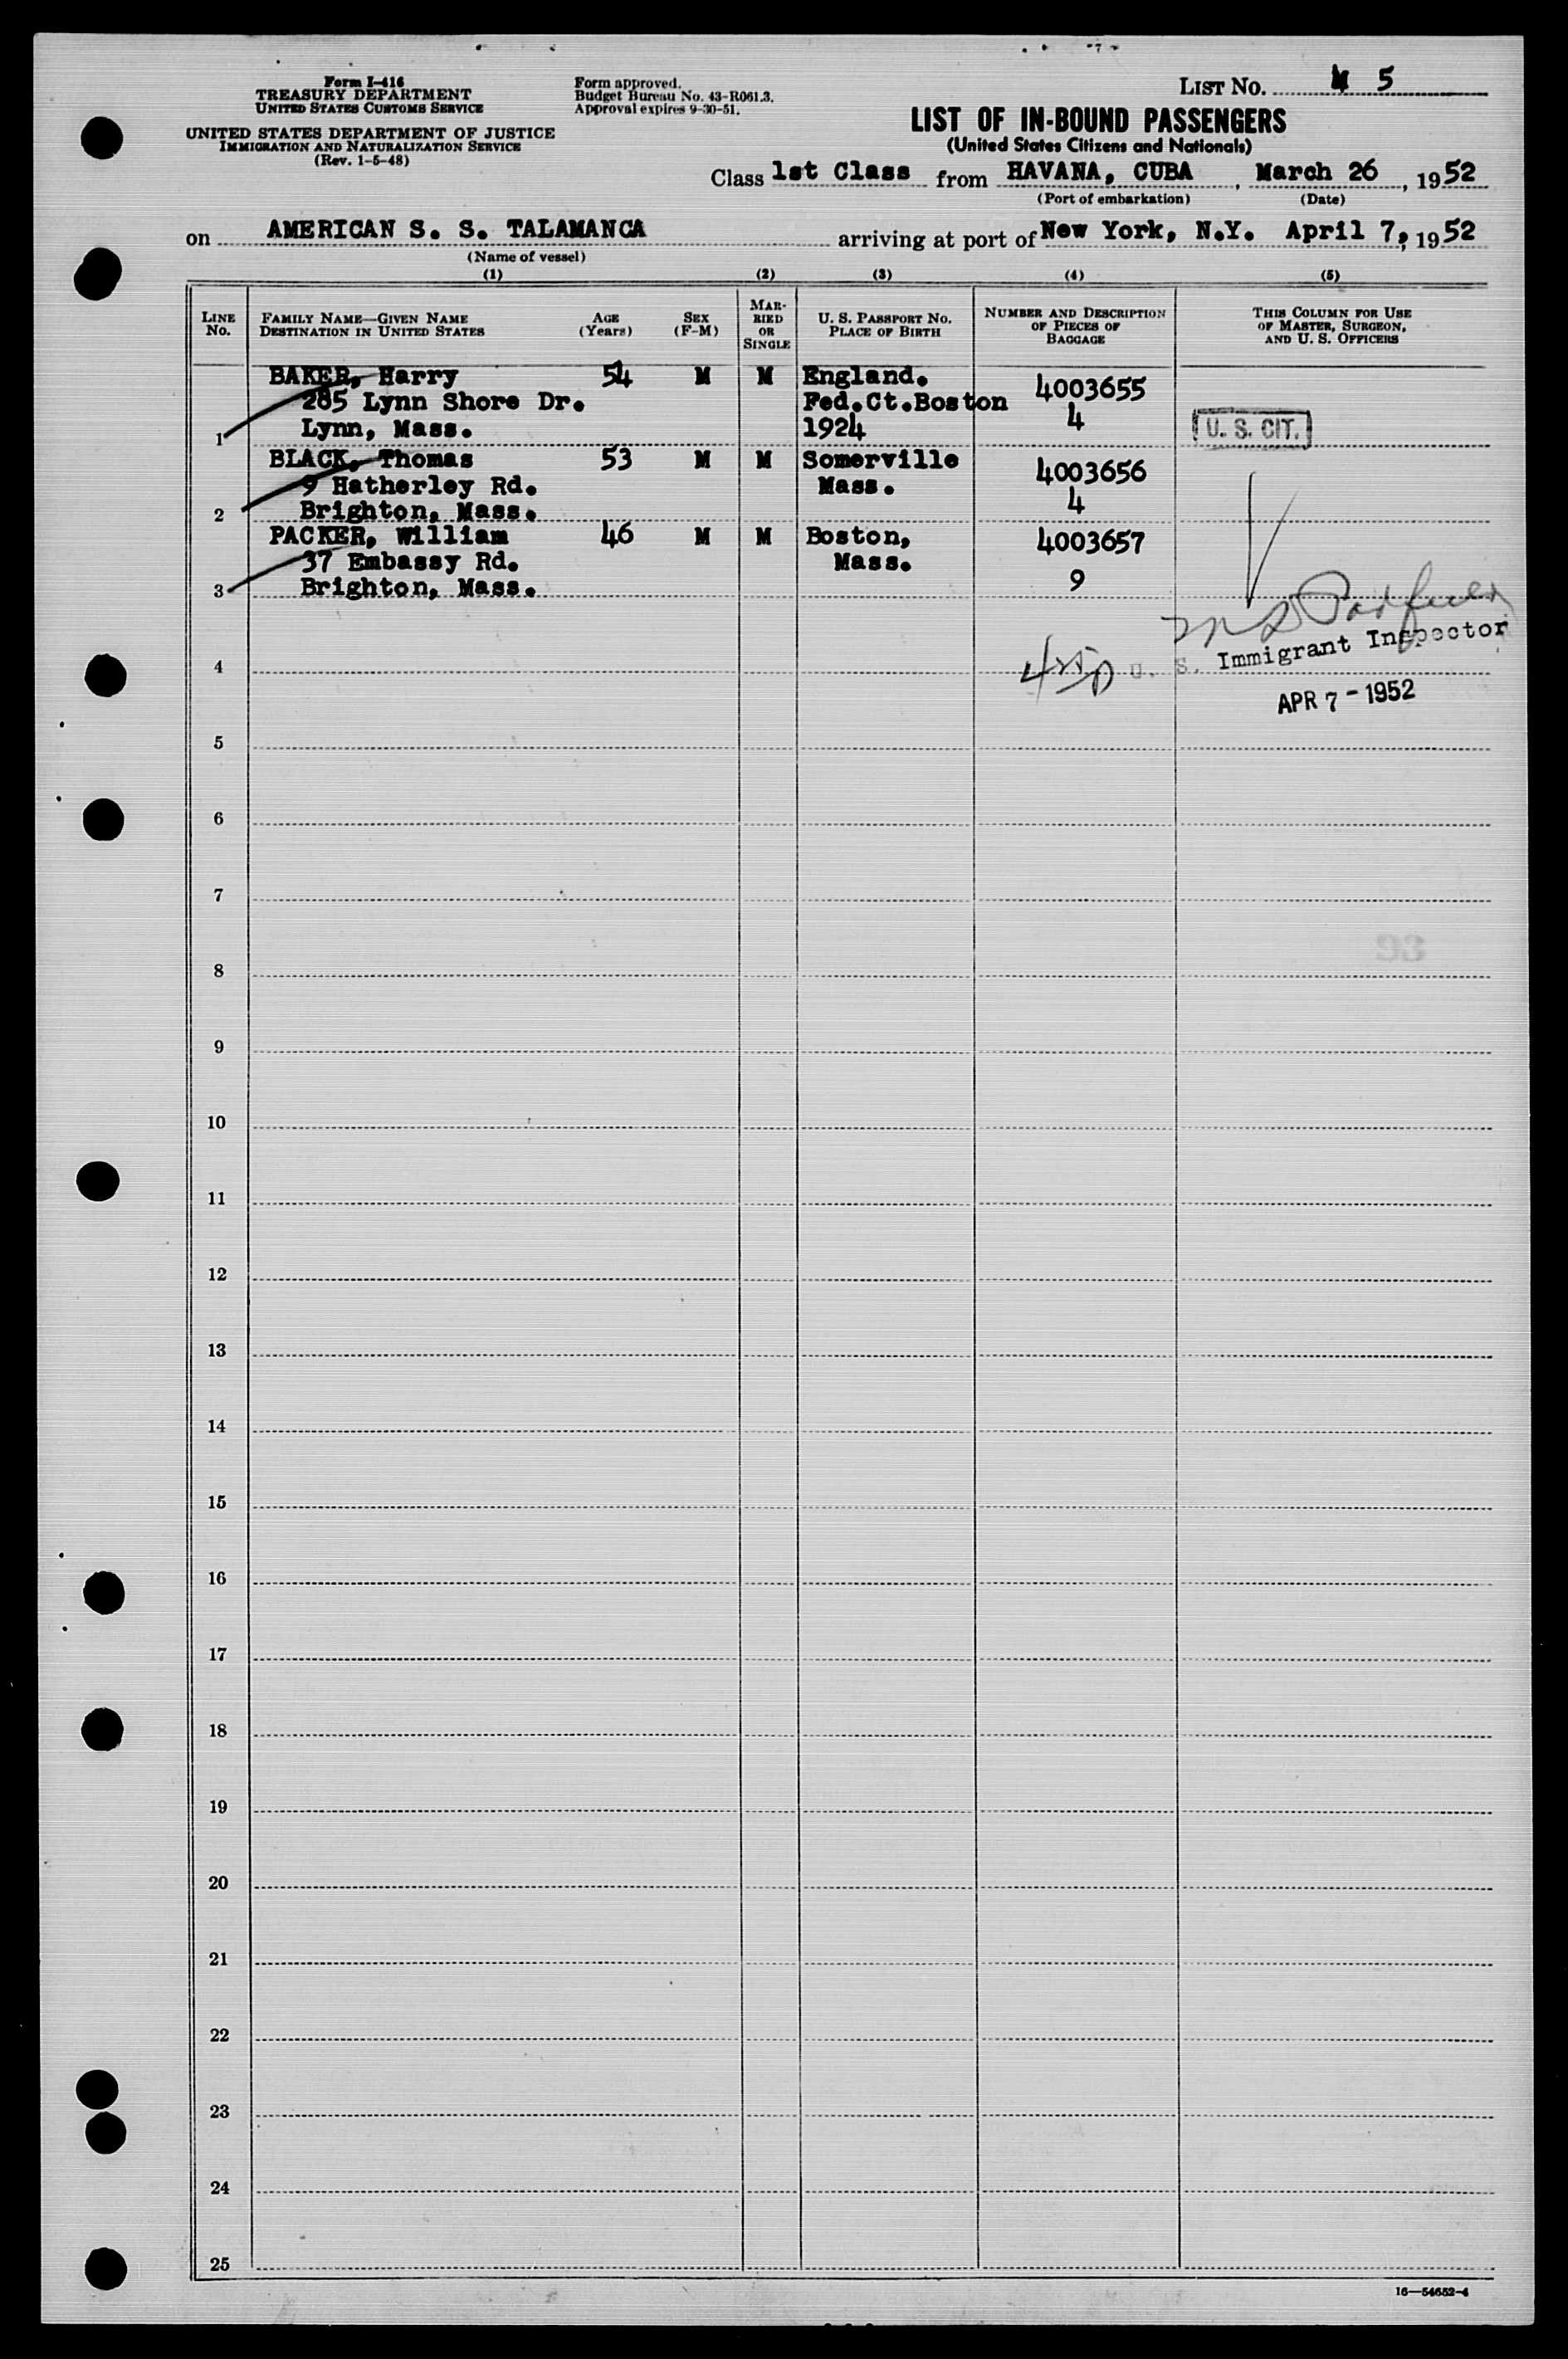 Form I-416
TREASURY DEPARTMENT
UNITED STATES CUSTOMS SERVICE
UNITED STATES DEPARTMENT OF JUSTICE
IMMIGRATION AND NATURALIZATION SERVICE
(Rev. 1-5-48)
Form approved.
Budget Bureau No. 43-R061.3.
Approval expires 9-30-51.
LIST NO. 5
LIST OF IN-BOUND PASSENGERS
(United States Citizens and Nationals)
Class 1st Class from HAVANA, CUBA, March 26, 1952
(Port of embarkation) (Date)
on AMERICAN S. S. TALAMANCA arriving at port of New York, N.Y. April 7, 1952
(Name of vessel)
(1) (2) (3) (4) (5)
LINE No.
FAMILY NAME—GIVEN NAME
DESTINATION IN UNITED STATES
AGE (Years)
SEX (F-M)
MARRIED OR SINGLE
U. S. PASSPORT NO.
PLACE OF BIRTH
NUMBER AND DESCRIPTION
OF PIECES OF
BAGGAGE
THIS COLUMN FOR USE
OF MASTER, SURGEON,
AND U. S. OFFICERS
BAKER, Harry 54 M M England. 4003655
285 Lynn Shore Dr. Fed.Ct.Boston 4
1 Lynn, Mass. 1924 U. S. CIT.
BLACK, Thomas 53 M M Somerville 4003656
9 Hatherley Rd. Mass. 4
2 Brighton, Mass.
PACKER, William 46 M M Boston, 4003657
37 Embassy Rd. Mass. 9
3 Brighton, Mass.
4 U. S. Immigrant Inspector
APR 7 - 1952
5
6
7
8
9
10
11
12
13
14
15
16
17
18
19
20
21
22
23
24
25
16—54652-4